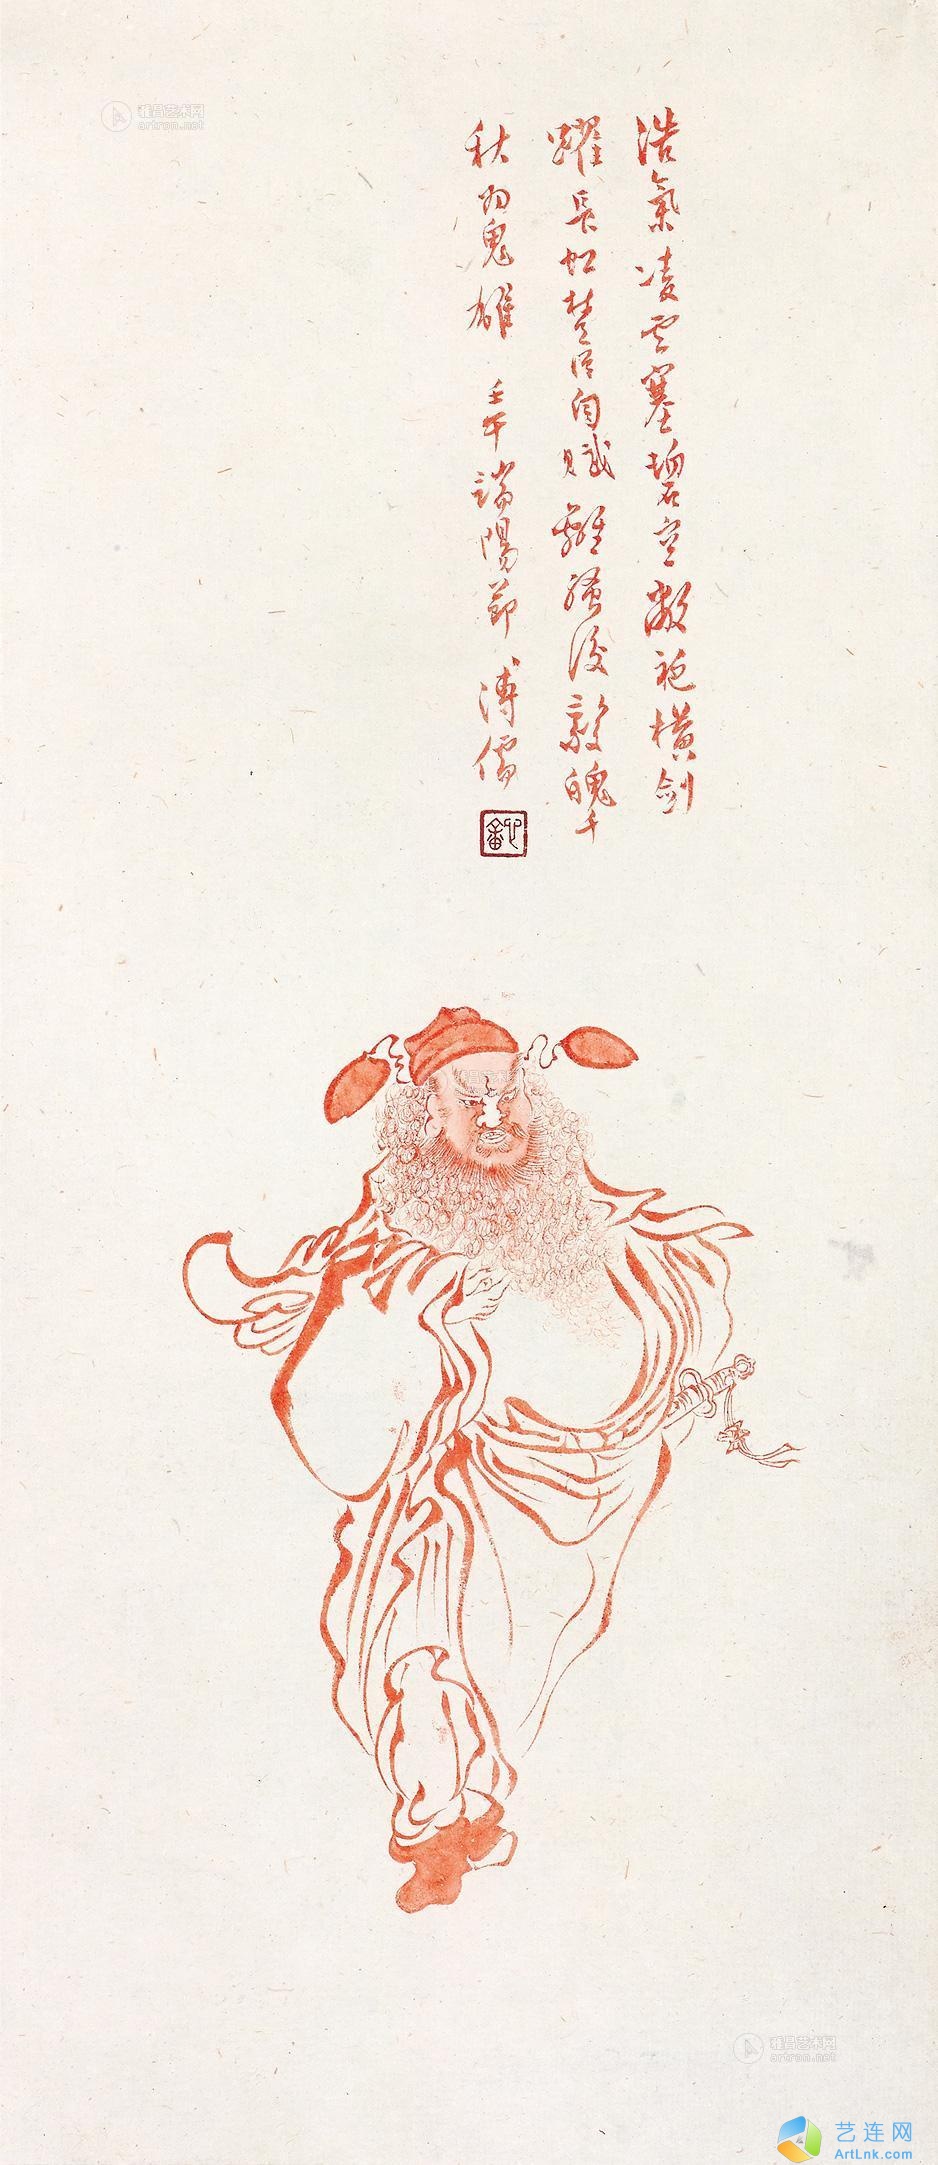 浩氣凌雲塞碧空敝袍橫劍
躍長虹楚臣自賦離騷後毅魄千
秋為鬼雄 壬午端陽節 溥儒
雅昌艺术网
artron.net
雅昌艺术网
artron.net
艺连网
ArtLnk.com